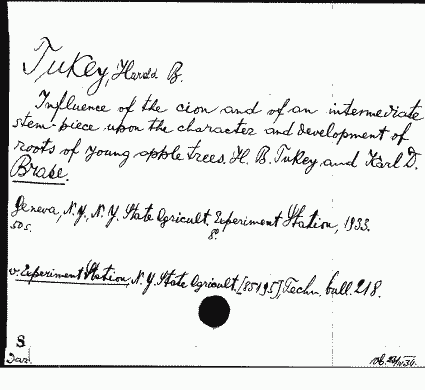 Tukey, Harold B.
Influence of the cion and of an intermediate
stem-piece upon the character and development of
roots of young apple trees. H. B. Tukey and Karl D.
Brase.
Geneva, N.Y., N.Y. State Agricult. Experiment Station, 1933.
50 s. 8.
v. Experiment Station, N.Y. State Agricult. [85195], Techn. bull. 218.
8